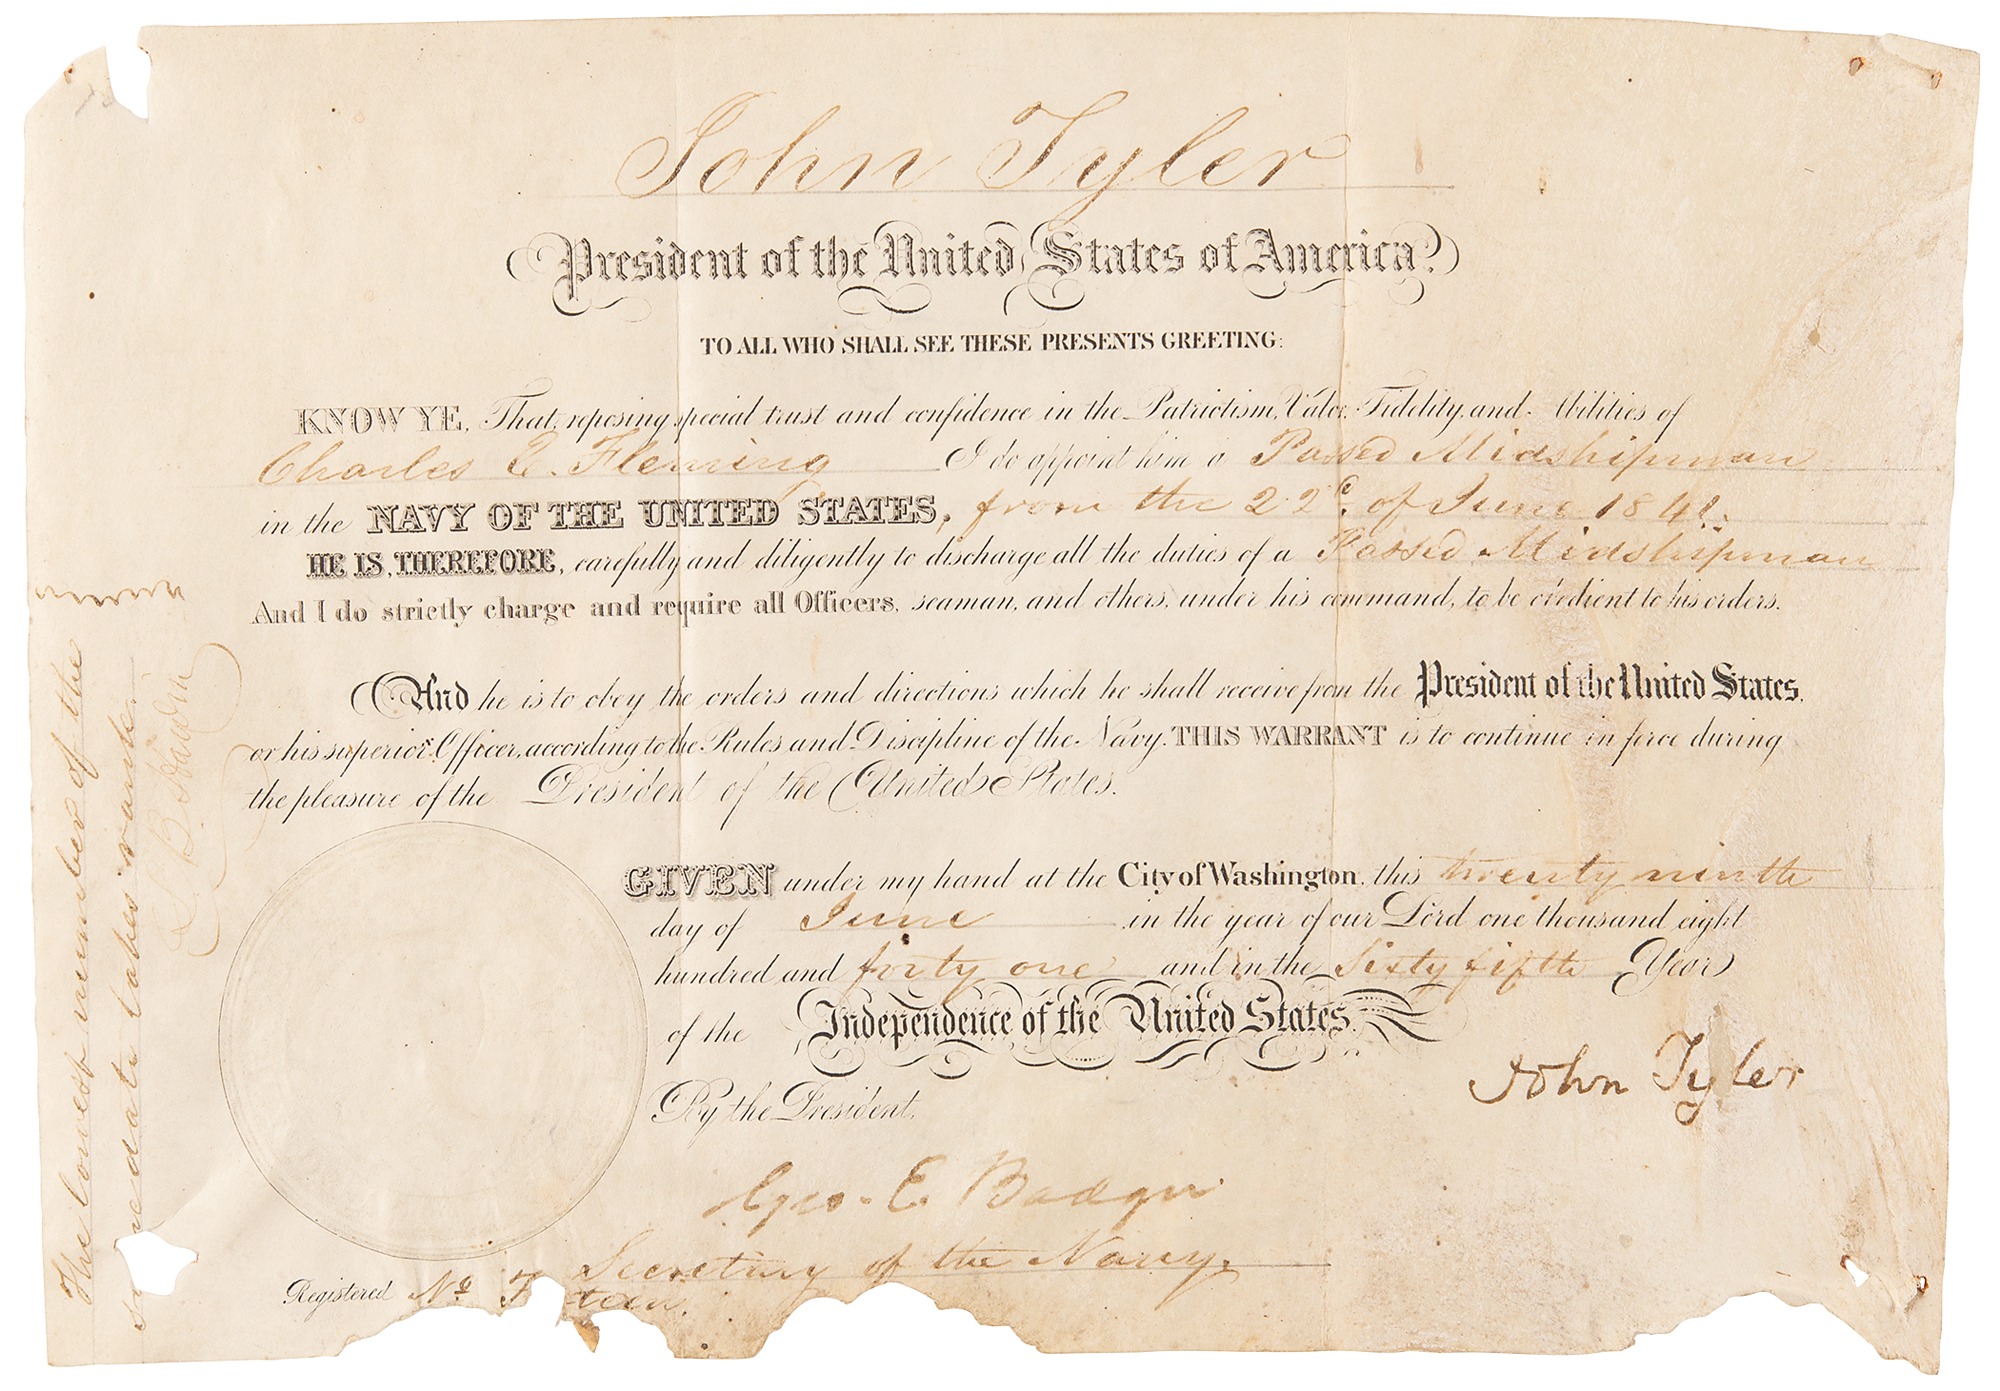 John Tyler
President of the United States of America.
TO ALL WHO SHALL SEE THESE PRESENTS GREETING:
KNOW YE, That, reposing special trust and confidence in the Patriotism, Valor, Fidelity, and Abilities of
Charles E. Fleming I do appoint him a Passed Midshipman
in the NAVY OF THE UNITED STATES, from the 22d of June 1841.
HE IS, THEREFORE, carefully and diligently to discharge all the duties of a Passed Midshipman
And I do strictly charge and require all Officers, seaman, and others, under his command, to be obedient to his orders.
And he is to obey the orders and directions which he shall receive from the President of the United States,
or his superior Officer, according to the Rules and Discipline of the Navy. THIS WARRANT is to continue in force during
the pleasure of the President of the United States.
GIVEN under my hand at the City of Washington, this twenty ninth
day of June in the year of our Lord one thousand eight
hundred and forty one and in the Sixty fifth Year
of the Independence of the United States.
John Tyler
By the President.
Geo. E. Badger
Secretary of the Navy.
Registered No. F teen.
The lowest number of the
same date takes rank.